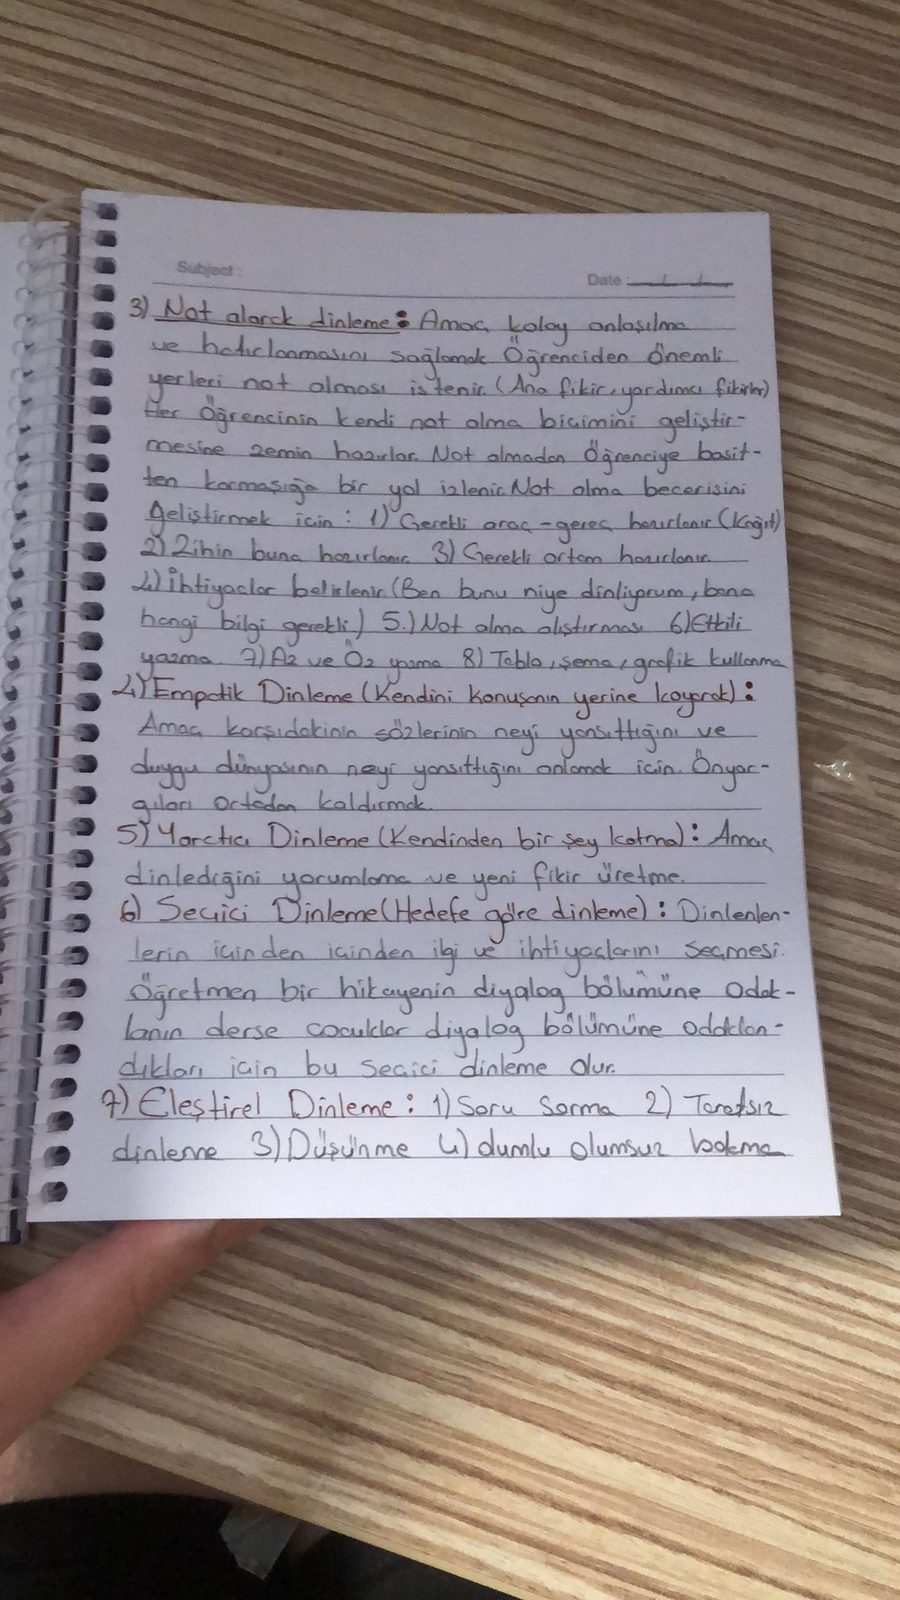 Subject:
Date:
3) Not alarak dinleme: Amaç kolay anlaşılma
ve hatırlanmasını sağlamak Öğrenciden önemli
yerleri not alması istenir. (Ana fikir, yardımcı fikirler)
Her Öğrencinin kendi not alma biçimini geliştir-
mesine zemin hazırlar. Not almadan Öğrenciye basit-
ten karmaşığa bir yol izlenir. Not alma becerisini
Geliştirmek için: 1) Gerekli araç-gereç hazırlanır (Kağıt)
2) Zihin buna hazırlanır 3) Gerekli ortam hazırlanır
4) İhtiyaçlar belirlenir (Ben bunu niye dinliyorum, bana
hangi bilgi gerekli) 5.) Not alma alıştırması 6) Etkili
yazma 7) Az ve Öz yazma 8) Tablo, şema, grafik kullanma
4) Empatik Dinleme (Kendini konuşanın yerine koyarak):
Amaç karşıdakinin sözlerinin neyi yansıttığını ve
duygu dünyasının neyi yansıttığını anlamak için. Önyar-
gıları ortadan kaldırmak.
5) Yaratıcı Dinleme (Kendinden bir şey katma): Amaç
dinlediğini yorumlama ve yeni fikir üretme.
6) Seçici Dinleme (Hedefe göre dinleme): Dinlenlen-
lerin içinden içinden ilgi ve ihtiyaçlarını seçmesi.
Öğretmen bir hikayenin diyalog bölümüne odak-
lanın derse çocuklar diyalog bölümüne odaklan-
dıkları için bu Seçici dinleme olur.
7) Eleştirel Dinleme: 1) Soru Sorma 2) Tarafsız
dinleme 3) Düşünme 4) dumlu olumsuz bakma